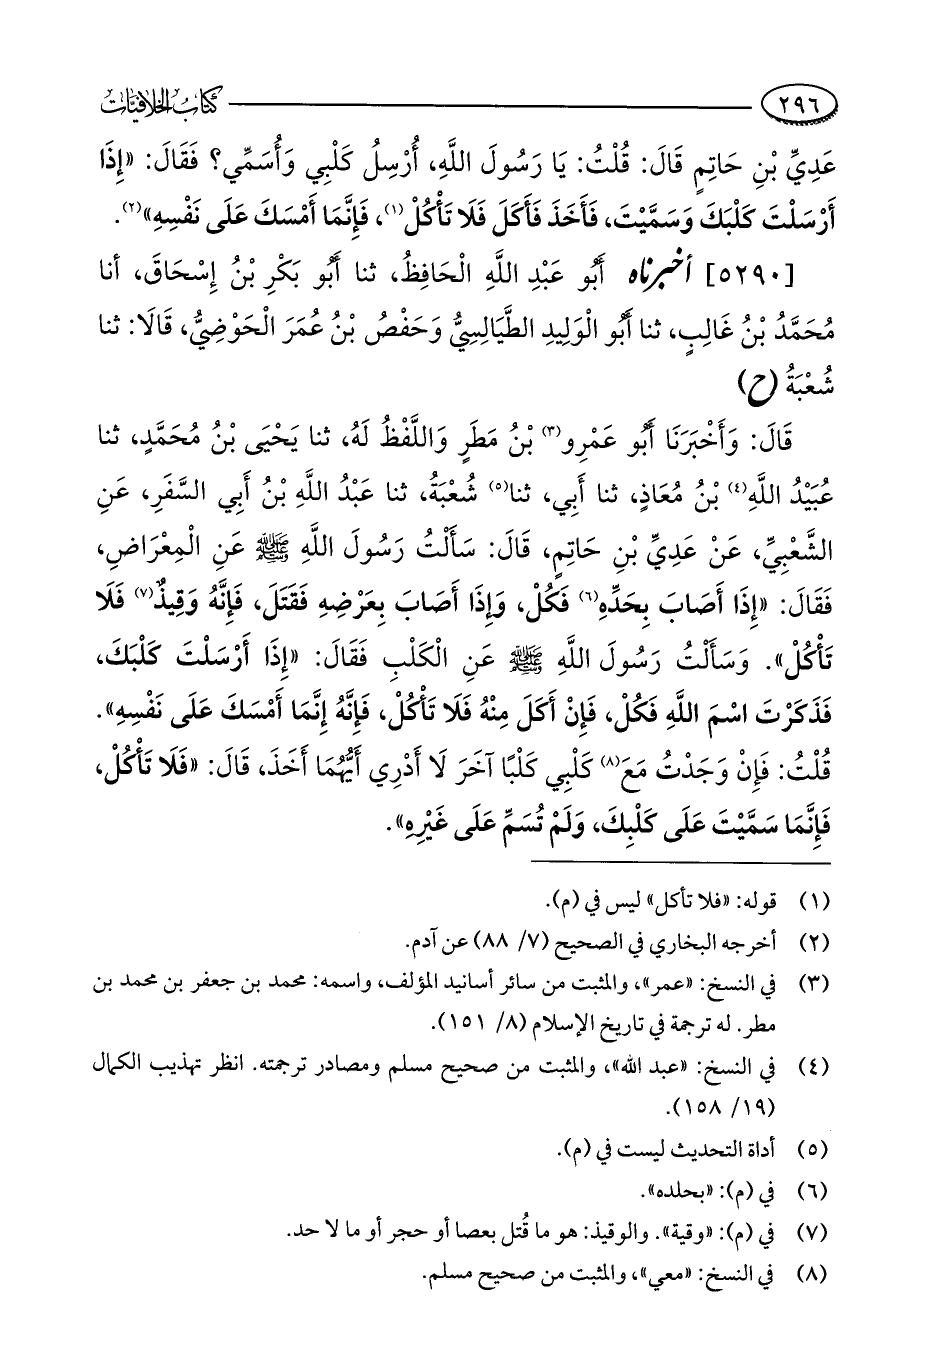 ٢٩٦ كتاب الخلافيات
عَدِيِّ بْنِ حَاتِمٍ قَالَ: قُلْتُ: يَا رَسُولَ اللَّهِ، أُرْسِلُ كَلْبِي وَأُسَمِّي؟ فَقَالَ: «إِذَا
أَرْسَلْتَ كَلْبَكَ وَسَمَّيْتَ، فَأَخَذَ فَأَكَلَ فَلَا تَأْكُلْ(١)، فَإِنَّمَا أَمْسَكَ عَلَى نَفْسِهِ»(٢).
[٥٢٩٠] أخبرناه أَبُو عَبْدِ اللَّهِ الْحَافِظُ، ثنا أَبُو بَكْرِ بْنُ إِسْحَاقَ، أنا
مُحَمَّدُ بْنُ غَالِبٍ، ثنا أَبُو الْوَلِيدِ الطَّيَالِسِيُّ وَحَفْصُ بْنُ عُمَرَ الْحَوْضِيُّ، قَالَا: ثنا
شُعْبَةُ (ح)
قَالَ: وَأَخْبَرَنَا أَبُو عَمْرِو(٣) بْنُ مَطَرٍ وَاللَّفْظُ لَهُ، ثنا يَحْيَى بْنُ مُحَمَّدٍ، ثنا
عُبَيْدُ اللَّهِ(٤) بْنُ مُعَاذٍ، ثنا أَبِي، ثنا(٥) شُعْبَةُ، ثنا عَبْدُ اللَّهِ بْنُ أَبِي السَّفَرِ، عَنِ
الشَّعْبِيِّ، عَنْ عَدِيِّ بْنِ حَاتِمٍ، قَالَ: سَأَلْتُ رَسُولَ اللَّهِ ﷺ عَنِ الْمِعْرَاضِ،
فَقَالَ: «إِذَا أَصَابَ بِحَدِّهِ(٦) فَكُلْ، وَإِذَا أَصَابَ بِعَرْضِهِ فَقَتَلَ، فَإِنَّهُ وَقِيذٌ(٧) فَلَا
تَأْكُلْ». وَسَأَلْتُ رَسُولَ اللَّهِ ﷺ عَنِ الْكَلْبِ فَقَالَ: «إِذَا أَرْسَلْتَ كَلْبَكَ،
فَذَكَرْتَ اسْمَ اللَّهِ فَكُلْ، فَإِنْ أَكَلَ مِنْهُ فَلَا تَأْكُلْ، فَإِنَّهُ إِنَّمَا أَمْسَكَ عَلَى نَفْسِهِ».
قُلْتُ: فَإِنْ وَجَدْتُ مَعَ(٨) كَلْبِي كَلْبًا آخَرَ لَا أَدْرِي أَيُّهُمَا أَخَذَ، قَالَ: «فَلَا تَأْكُلْ،
فَإِنَّمَا سَمَّيْتَ عَلَى كَلْبِكَ، وَلَمْ تُسَمِّ عَلَى غَيْرِهِ».
(١) قوله: «فلا تأكل» ليس في (م).
(٢) أخرجه البخاري في الصحيح (٧/ ٨٨) عن آدم.
(٣) في النسخ: «عمر»، والمثبت من سائر أسانيد المؤلف، واسمه: محمد بن جعفر بن محمد بن
مطر. له ترجمة في تاريخ الإسلام (٨/ ١٥١).
(٤) في النسخ: «عبد الله»، والمثبت من صحيح مسلم ومصادر ترجمته. انظر تهذيب الكمال
(١٩/ ١٥٨).
(٥) أداة التحديث ليست في (م).
(٦) في (م): «بحلده».
(٧) في (م): «وقية». والوقيذ: هو ما قُتل بعصا أو حجر أو ما لا حد.
(٨) في النسخ: «معي»، والمثبت من صحيح مسلم.